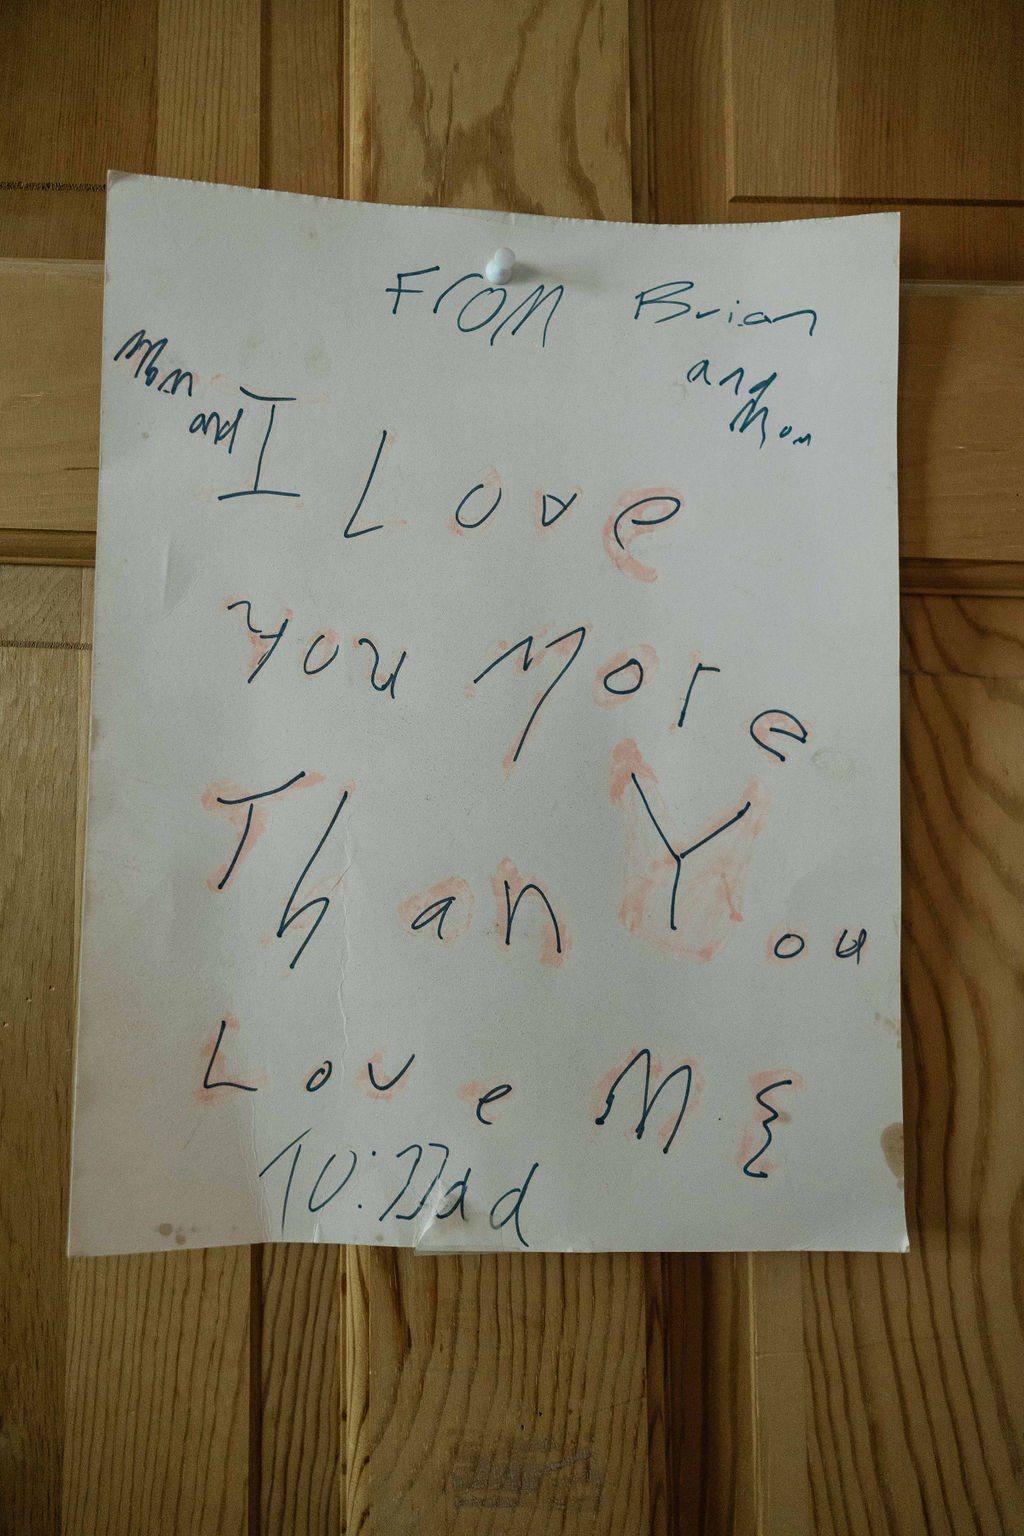 From Brian
and
Mom
Mom
and
I Love
You More
Than You
Love ME
To: Dad